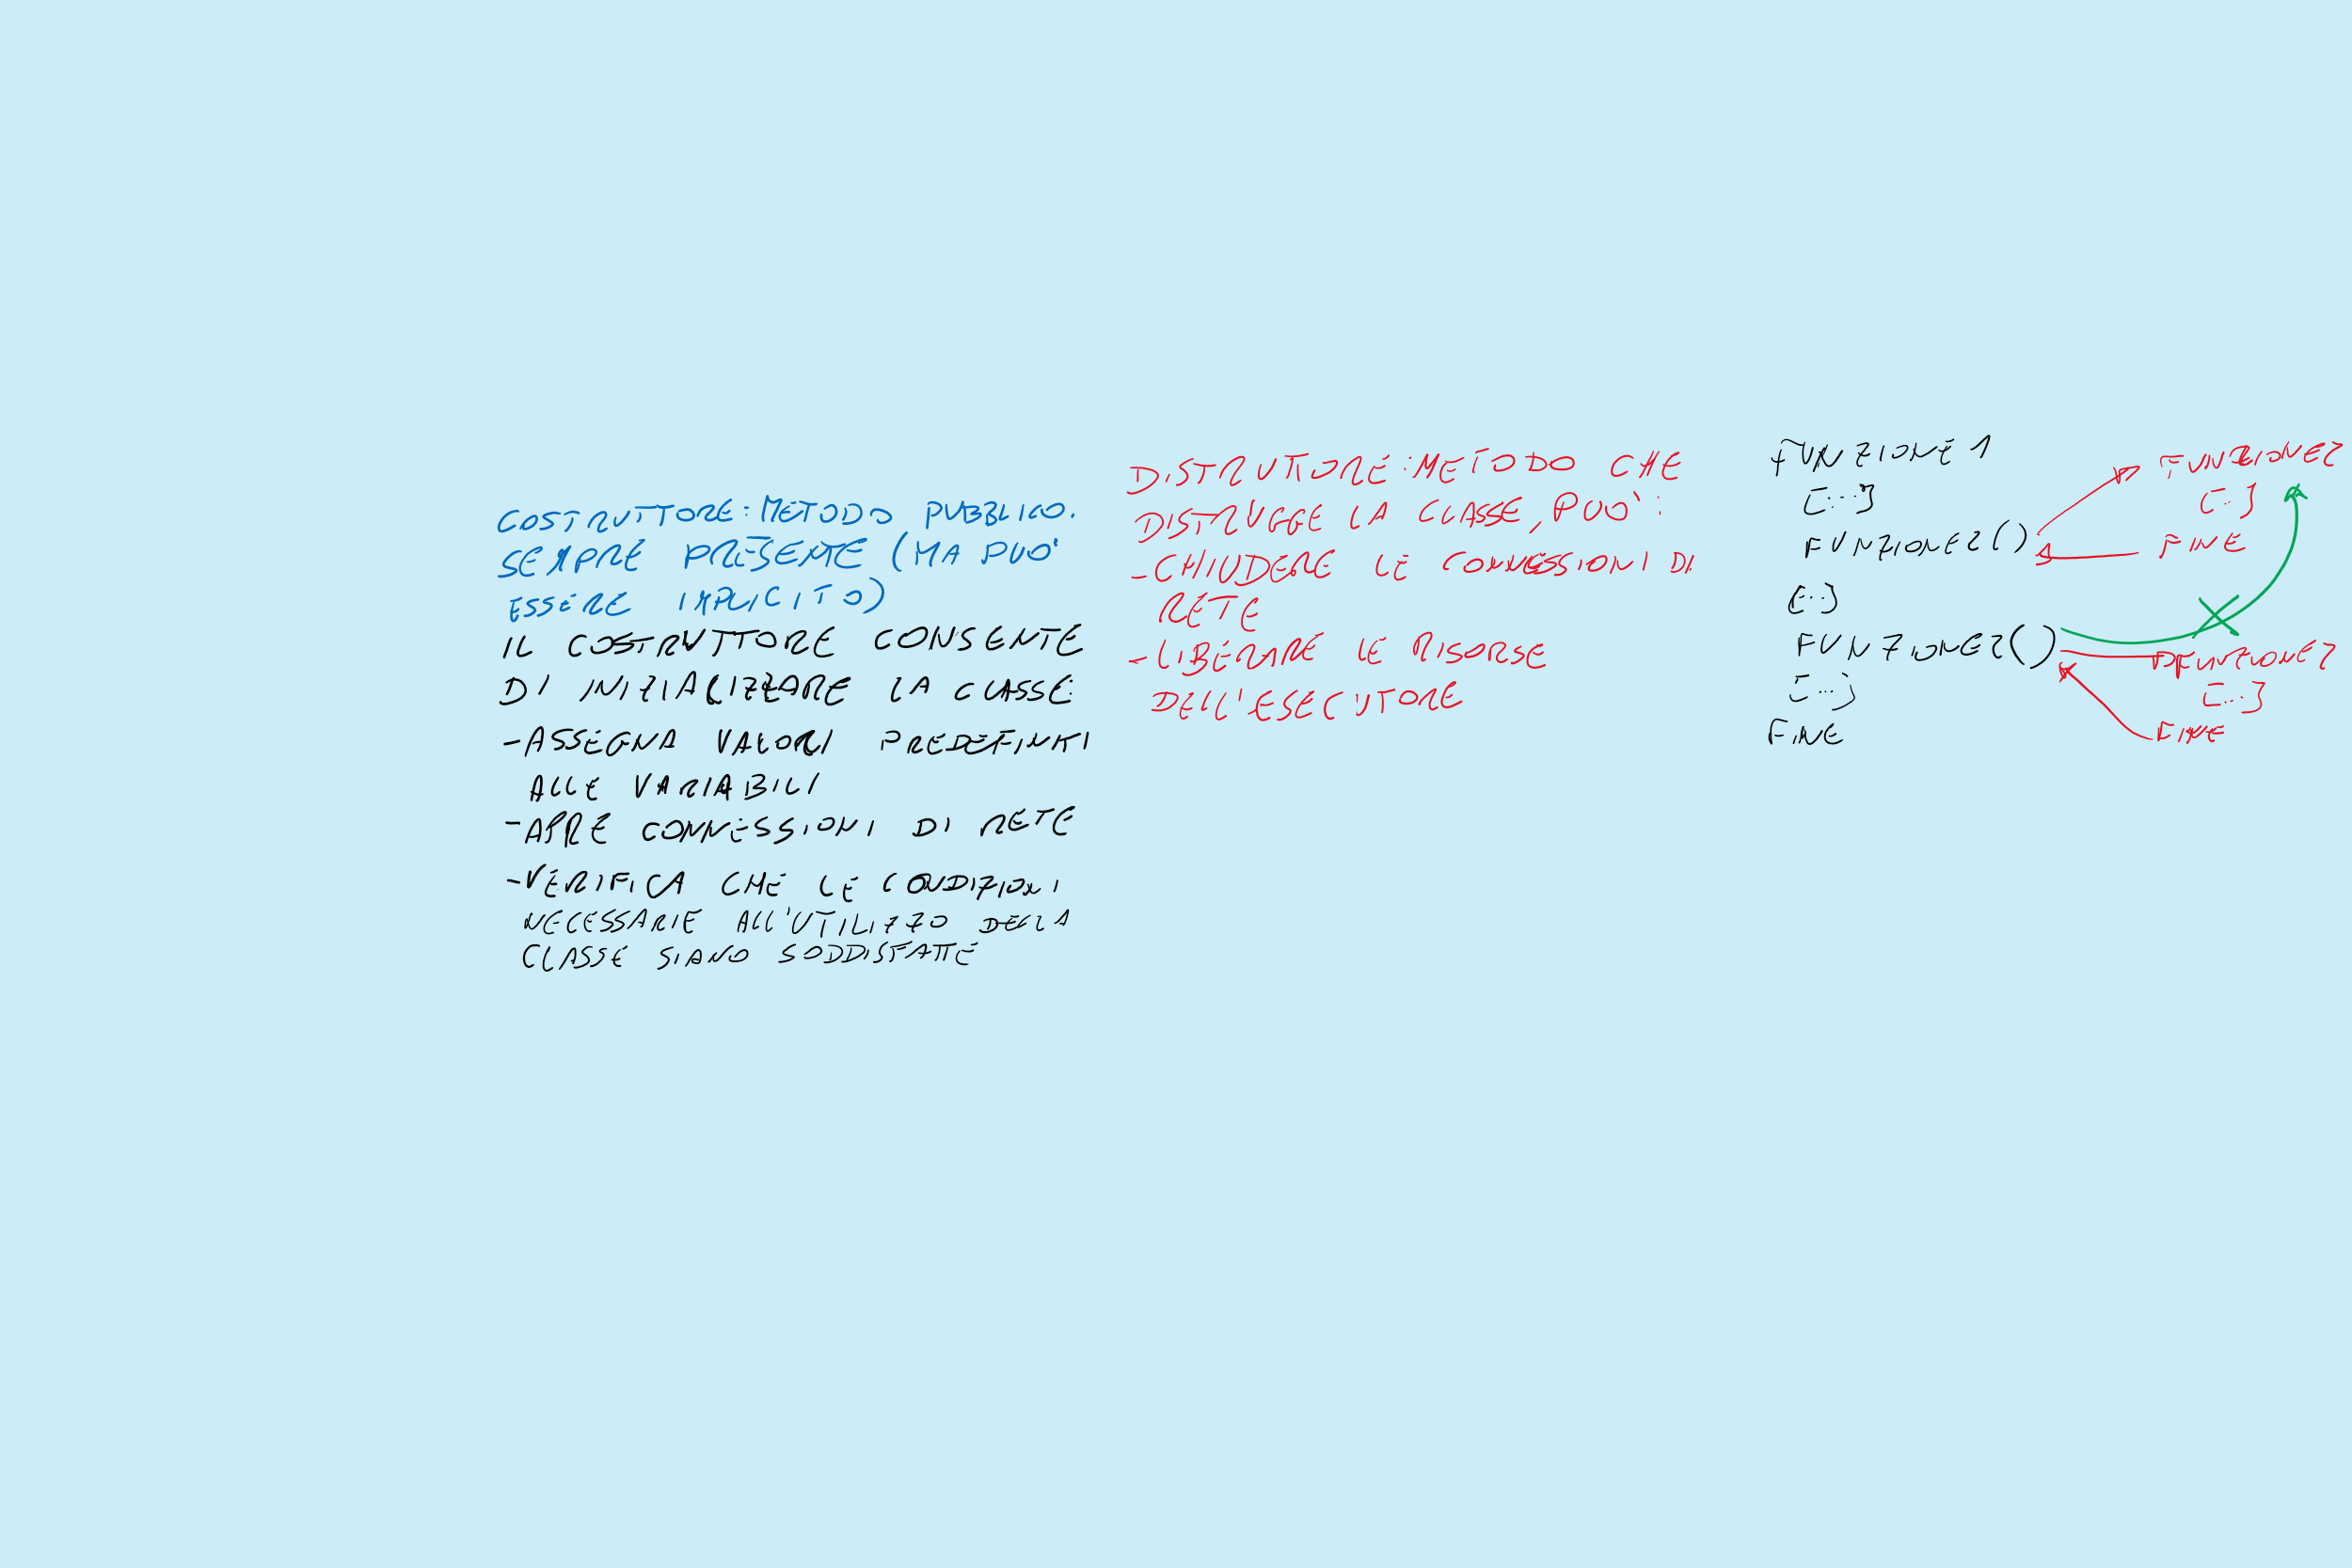 COSTRUTTORE: METODO PUBBLICO.
SEMPRE PRESENTE (MA PUO'
ESSERE IMPLICITO)
IL COSTRUTTORE CONSENTE
DI INIZIALIZZARE LA CLASSE:
-ASSEGNA VALORI PREDEFINITI
ALLE VARIABILI
-APRE CONNESSIONI DI RETE
-VERIFICA CHE LE CONDIZIONI
NECESSARIE ALL'UTILIZZO DELLA
CLASSE SIANO SODDISFATTE
DISTRUTTORE: METODO CHE
DISTRUGGE LA CLASSE, PUO':
-CHIUDERE LE CONNESSIONI DI
RETE
-LIBERARE LE RISORSE
DELL'ESECUTORE
FUNZIONE 1
[...]
FUNZIONE2()
[...]
FUNZIONE2()
[...]
FINE
FUNZIONE2
[...]
FINE
FUNZIONE2
[...]
FINE